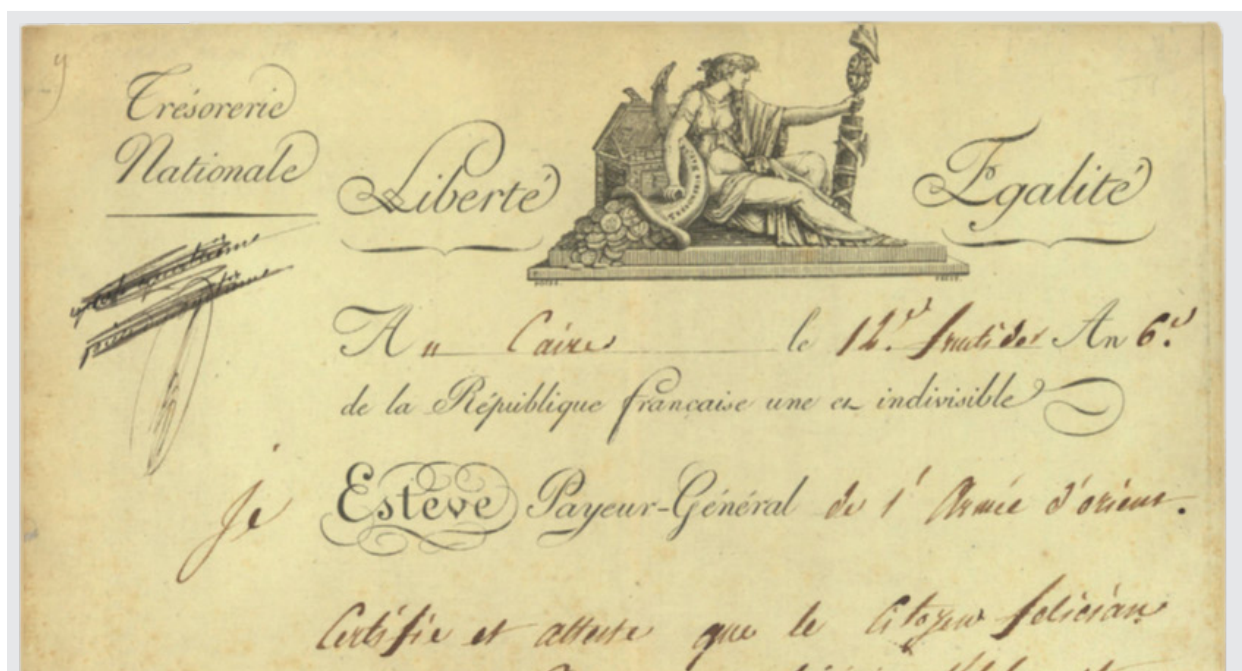 Trésorerie
Nationale
Liberté Egalité
Au Caire le 12.d fructidor An 6.e
de la République française une et indivisible
Je Estève Payeur-Général de l'Armée d'orient.
Certifie et atteste que le Citoyen felician